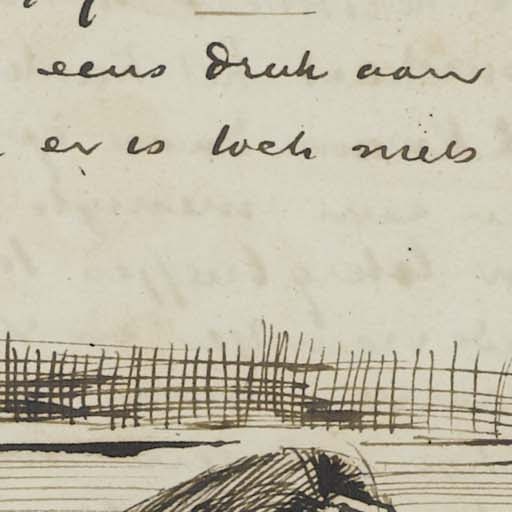 eens druk aan
er is toch niets